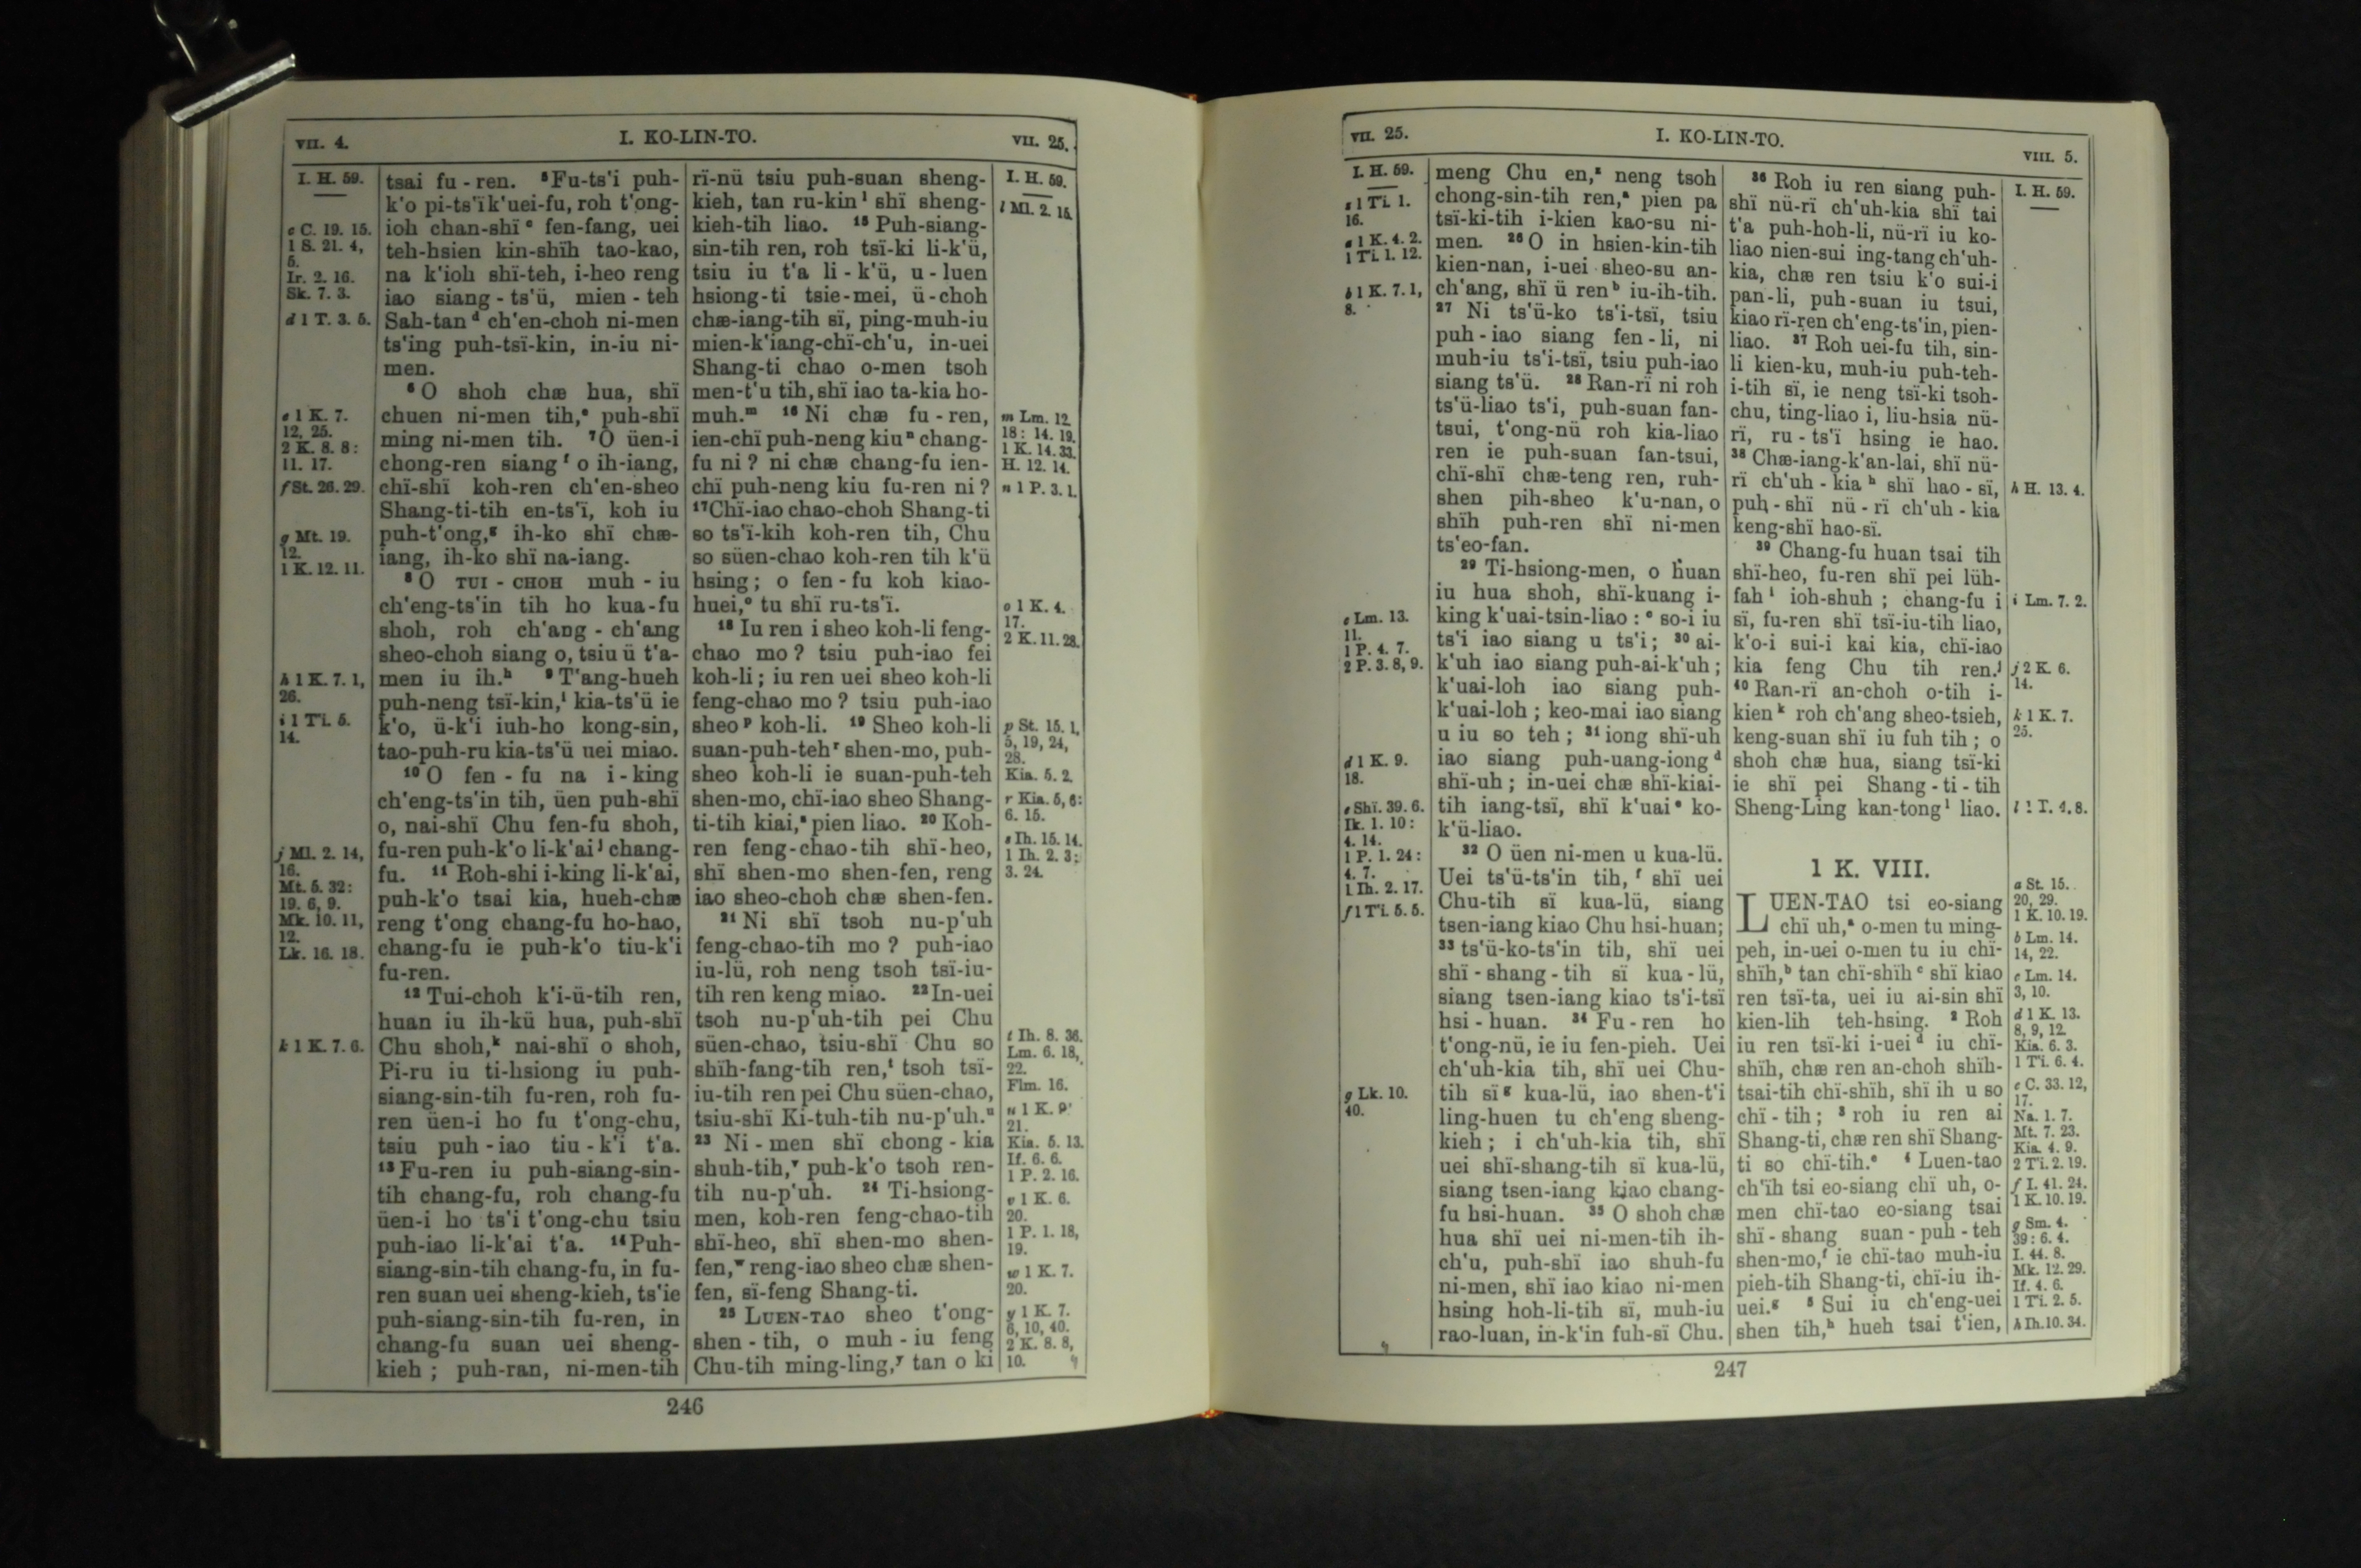 VII. 4.
I. KO-LIN-TO.
VII. 25.
I. H. 59.
c C. 19. 15.
1 S. 21. 4,
5.
Ir. 2. 16.
Sk. 7. 3.
d 1 T. 3. 5.
e 1 K. 7.
12, 25.
2 K. 8. 8:
11. 17.
f St. 26. 29.
g Mt. 19.
12.
1 K. 12. 11.
h 1 K. 7. 1,
26.
i 1 Ti. 5.
14.
j Ml. 2. 14,
16.
Mt. 5. 32:
19. 6, 9.
Mk. 10. 11,
12.
Lk. 16. 18.
k 1 K. 7. 6.
tsai fu-ren. ⁵Fu-ts'i puh-
k'o pi-ts'ï k'uei-fu, roh t'ong-
ioh chan-shï ᶜ fen-fang, uei
teh-hsien kin-shïh tao-kao,
na k'ioh shï-teh, i-heo reng
iao siang-ts'ü, mien-teh
Sah-tan ᵈ ch'en-choh ni-men
ts'ing puh-tsï-kin, in-iu ni-
men.
⁶ O shoh chæ hua, shï
chuen ni-men tih,ᵉ puh-shï
ming ni-men tih. ⁷O üen-i
chong-ren siang ᶠ o ih-iang,
chï-shï koh-ren ch'en-sheo
Shang-ti-tih en-ts'ï, koh iu
puh-t'ong,ᵍ ih-ko shï chæ-
iang, ih-ko shï na-iang.
⁸ O TUI-CHOH muh-iu
ch'eng-ts'in tih ho kua-fu
shoh, roh ch'ang-ch'ang
sheo-choh siang o, tsiu ü t'a-
men iu ih.ʰ ⁹T'ang-hueh
puh-neng tsï-kin,ⁱ kia-ts'ü ie
k'o, ü-k'i iuh-ho kong-sin,
tao-puh-ru kia-ts'ü uei miao.
¹⁰ O fen-fu na i-king
ch'eng-ts'in tih, üen puh-shï
o, nai-shï Chu fen-fu shoh,
fu-ren puh-k'o li-k'ai ʲ chang-
fu. ¹¹ Roh-shi i-king li-k'ai,
puh-k'o tsai kia, hueh-chæ
reng t'ong chang-fu ho-hao,
chang-fu ie puh-k'o tiu-k'i
fu-ren.
¹² Tui-choh k'i-ü-tih ren,
huan iu ih-kü hua, puh-shï
Chu shoh,ᵏ nai-shï o shoh,
Pi-ru iu ti-hsiong iu puh-
siang-sin-tih fu-ren, roh fu-
ren üen-i ho fu t'ong-chu,
tsiu puh-iao tiu-k'i t'a.
¹³ Fu-ren iu puh-siang-sin-
tih chang-fu, roh chang-fu
üen-i ho ts'i t'ong-chu tsiu
puh-iao li-k'ai t'a. ¹⁴Puh-
siang-sin-tih chang-fu, in fu-
ren suan uei sheng-kieh, ts'ie
puh-siang-sin-tih fu-ren, in
chang-fu suan uei sheng-
kieh; puh-ran, ni-men-tih
rï-nü tsiu puh-suan sheng-
kieh, tan ru-kin ˡ shï sheng-
kieh-tih liao. ¹⁵ Puh-siang-
sin-tih ren, roh tsï-ki li-k'ü,
tsiu iu t'a li-k'ü, u-luen
hsiong-ti tsie-mei, ü-choh
chæ-iang-tih sï, ping-muh-iu
mien-k'iang-chï-ch'u, in-uei
Shang-ti chao o-men tsoh
men-t'u tih, shï iao ta-kia ho-
muh.ᵐ ¹⁶ Ni chæ fu-ren,
ien-chï puh-neng kiu ⁿ chang-
fu ni? ni chæ chang-fu ien-
chï puh-neng kiu fu-ren ni?
¹⁷Chï-iao chao-choh Shang-ti
so ts'ï-kih koh-ren tih, Chu
so süen-chao koh-ren tih k'ü
hsing; o fen-fu koh kiao-
huei,ᵒ tu shï ru-ts'ï.
¹⁸ Iu ren i sheo koh-li feng-
chao mo? tsiu puh-iao fei
koh-li; iu ren uei sheo koh-li
feng-chao mo? tsiu puh-iao
sheo ᵖ koh-li. ¹⁹ Sheo koh-li
suan-puh-teh ʳ shen-mo, puh-
sheo koh-li ie suan-puh-teh
shen-mo, chï-iao sheo Shang-
ti-tih kiai,ˢ pien liao. ²⁰ Koh-
ren feng-chao-tih shï-heo,
shï shen-mo shen-fen, reng
iao sheo-choh chæ shen-fen.
²¹ Ni shï tsoh nu-p'uh
feng-chao-tih mo? puh-iao
iu-lü, roh neng tsoh tsï-iu-
tih ren keng miao. ²²In-uei
tsoh nu-p'uh-tih pei Chu
süen-chao, tsiu-shï Chu so
shïh-fang-tih ren,ᵗ tsoh tsï-
iu-tih ren pei Chu süen-chao,
tsiu-shï Ki-tuh-tih nu-p'uh.ᵘ
²³ Ni-men shï chong-kia
shuh-tih,ᵛ puh-k'o tsoh ren-
tih nu-p'uh. ²⁴ Ti-hsiong-
men, koh-ren feng-chao-tih
shï-heo, shï shen-mo shen-
fen,ʷ reng-iao sheo chæ shen-
fen, sï-feng Shang-ti.
²⁵ LUEN-TAO sheo t'ong-
shen-tih, o muh-iu feng
Chu-tih ming-ling,ʸ tan o ki
I. H. 59.
l Ml. 2. 15.
m Lm. 12.
18: 14. 19.
1 K. 14. 33.
H. 12. 14.
n 1 P. 3. 1.
o 1 K. 4.
17.
2 K. 11. 28.
p St. 15. 1,
5, 19, 24,
28.
Kia. 5. 2.
r Kia. 5, 6:
6. 15.
s Ih. 15. 14.
1 Ih. 2. 3:
3. 24.
t Ih. 8. 36.
Lm. 6. 18,
22.
Flm. 16.
u 1 K. 9.
21.
Kia. 5. 13.
If. 6. 6.
1 P. 2. 16.
v 1 K. 6.
20.
1 P. 1. 18,
19.
w 1 K. 7.
20.
y 1 K. 7.
6, 10, 40.
2 K. 8. 8,
10.
246
VII. 25.
I. KO-LIN-TO.
VIII. 5.
I. H. 59.
z 1 Ti. 1.
16.
a 1 K. 4. 2.
1 Ti. 1. 12.
b 1 K. 7. 1,
8.
c Lm. 13.
11.
1 P. 4. 7.
2 P. 3. 8, 9.
d 1 K. 9.
18.
e Shï. 39. 6.
Ik. 1. 10:
4. 14.
1 P. 1. 24:
4. 7.
1 Ih. 2. 17.
f 1 Ti. 5. 5.
g Lk. 10.
40.
meng Chu en,ᶻ neng tsoh
chong-sin-tih ren,ᵃ pien pa
tsï-ki-tih i-kien kao-su ni-
men. ²⁶ O in hsien-kin-tih
kien-nan, i-uei sheo-su an-
ch'ang, shï ü ren ᵇ iu-ih-tih.
²⁷ Ni ts'ü-ko ts'i-tsï, tsiu
puh-iao siang fen-li, ni
muh-iu ts'i-tsï, tsiu puh-iao
siang ts'ü. ²⁸ Ran-rï ni roh
ts'ü-liao ts'i, puh-suan fan-
tsui, t'ong-nü roh kia-liao
ren ie puh-suan fan-tsui,
chï-shï chæ-teng ren, ruh-
shen pih-sheo k'u-nan, o
shïh puh-ren shï ni-men
ts'eo-fan.
²⁹ Ti-hsiong-men, o huan
iu hua shoh, shï-kuang i-
king k'uai-tsin-liao: ᶜ so-i iu
ts'i iao siang u ts'i; ³⁰ ai-
k'uh iao siang puh-ai-k'uh;
k'uai-loh iao siang puh-
k'uai-loh; keo-mai iao siang
u iu so teh; ³¹ iong shï-uh
iao siang puh-uang-iong ᵈ
shï-uh; in-uei chæ shï-kiai-
tih iang-tsï, shï k'uai ᵉ ko-
k'ü-liao.
³² O üen ni-men u kua-lü.
Uei ts'ü-ts'in tih, ᶠ shï uei
Chu-tih sï kua-lü, siang
tsen-iang kiao Chu hsi-huan;
³³ ts'ü-ko-ts'in tih, shï uei
shï-shang-tih sï kua-lü,
siang tsen-iang kiao ts'i-tsï
hsi-huan. ³⁴ Fu-ren ho
t'ong-nü, ie iu fen-pieh. Uei
ch'uh-kia tih, shï uei Chu-
tih sï ᵍ kua-lü, iao shen-t'i
ling-huen tu ch'eng sheng-
kieh; i ch'uh-kia tih, shï
uei shï-shang-tih sï kua-lü,
siang tsen-iang kiao chang-
fu hsi-huan. ³⁵ O shoh chæ
hua shï uei ni-men-tih ih-
ch'u, puh-shï iao shuh-fu
ni-men, shï iao kiao ni-men
hsing hoh-li-tih sï, muh-iu
rao-luan, in-k'in fuh-sï Chu.
³⁶ Roh iu ren siang puh-
shï nü-rï ch'uh-kia shï tai
t'a puh-hoh-li, nü-rï iu ko-
liao nien-sui ing-tang ch'uh-
kia, chæ ren tsiu k'o sui-i
pan-li, puh-suan iu tsui,
kiao rï-ren ch'eng-ts'in, pien-
liao. ³⁷ Roh uei-fu tih, sin-
li kien-ku, muh-iu puh-teh-
i-tih sï, ie neng tsï-ki tsoh-
chu, ting-liao i, liu-hsia nü-
rï, ru-ts'ï hsing ie hao.
³⁸ Chæ-iang-k'an-lai, shï nü-
rï ch'uh-kia ʰ shï hao-sï,
puh-shï nü-rï ch'uh-kia
keng-shï hao-sï.
³⁹ Chang-fu huan tsai tih
shï-heo, fu-ren shï pei lüh-
fah ⁱ ioh-shuh; chang-fu i
sï, fu-ren shï tsï-iu-tih liao,
k'o-i sui-i kai kia, chï-iao
kia feng Chu tih ren.ʲ
⁴⁰ Ran-rï an-choh o-tih i-
kien ᵏ roh ch'ang sheo-tsieh,
keng-suan shï iu fuh tih; o
shoh chæ hua, siang tsï-ki
ie shï pei Shang-ti-tih
Sheng-Ling kan-tong ˡ liao.
1 K. VIII.
LUEN-TAO tsi eo-siang
chï uh,ᵃ o-men tu ming-
peh, in-uei o-men tu iu chï-
shïh,ᵇ tan chï-shïh ᶜ shï kiao
ren tsï-ta, uei iu ai-sin shï
kien-lih teh-hsing. ² Roh
iu ren tsï-ki i-uei ᵈ iu chï-
shïh, chæ ren an-choh shïh-
tsai-tih chï-shïh, shï ih u so
chï-tih; ³ roh iu ren ai
Shang-ti, chæ ren shï Shang-
ti so chï-tih.ᵉ ⁴ Luen-tao
ch'ïh tsi eo-siang chï uh, o-
men chï-tao eo-siang tsai
shï-shang suan-puh-teh
shen-mo,ᶠ ie chï-tao muh-iu
pieh-tih Shang-ti, chï-iu ih-
uei.ᵍ ⁵ Sui iu ch'eng-uei
shen tih,ʰ hueh tsai t'ien,
I. H. 59.
h H. 13. 4.
i Lm. 7. 2.
j 2 K. 6.
14.
k 1 K. 7.
25.
l 1 T. 4. 8.
a St. 15.
20, 29.
1 K. 10. 19.
b Lm. 14.
14, 22.
c Lm. 14.
3, 10.
d 1 K. 13.
8, 9, 12.
Kia. 6. 3.
1 Ti. 6. 4.
e C. 33. 12,
17.
Na. 1. 7.
Mt. 7. 23.
Kia. 4. 9.
2 Ti. 2. 19.
f I. 41. 24.
1 K. 10. 19.
g Sm. 4.
39: 6. 4.
I. 44. 8.
Mk. 12. 29.
If. 4. 6.
1 Ti. 2. 5.
h Ih. 10. 34.
247